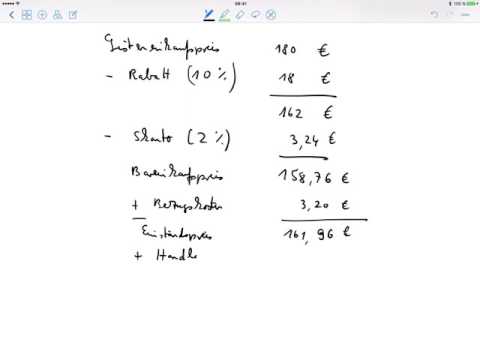 08:41
100 %
Listeneinkaufspreis 180 €
- Rabatt (10 %) 18 €
162 €
- Skonto (2 %) 3,24 €
Bareinkaufspreis 158,76 €
+ Bezugskosten 3,20 €
Einstandspreis 161,96 €
+ Handl